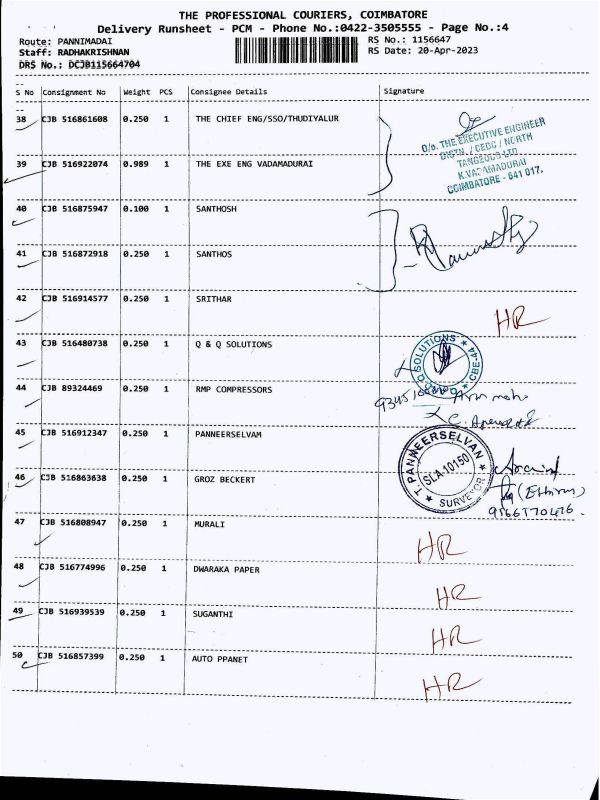 THE PROFESSIONAL COURIERS, COIMBATORE
Delivery Runsheet - PCM - Phone No.:0422-3505555 - Page No.:4
Route: PANNIMADAI
RS No.: 1156647
Staff: RADHAKRISHNAN
RS Date: 20-Apr-2023
DRS No.: DCJB115664704
S No Consignment No Weight PCS Consignee Details Signature
38 CJB 516861608 0.250 1 THE CHIEF ENG/SSO/THUDIYALUR
O/o. THE EXECUTIVE ENGINEER
DISTN. / CEDC / NORTH
TANGEDCO LTD
K.VADAMADURAI
COIMBATORE - 641 017.
39 CJB 516922074 0.989 1 THE EXE ENG VADAMADURAI
40 CJB 516875947 0.100 1 SANTHOSH
41 CJB 516872918 0.250 1 SANTHOS
42 CJB 516914577 0.250 1 SRITHAR
HR
43 CJB 516480738 0.250 1 Q & Q SOLUTIONS
Q AND Q SOLUTIONS CBE-44
44 CJB 89324469 0.250 1 RMP COMPRESSORS
45 CJB 516912347 0.250 1 PANNEERSELVAM
T. PANNEERSELVAN
SLA-10150
SURVEYOR
46 CJB 516863638 0.250 1 GROZ BECKERT
47 CJB 516808947 0.250 1 MURALI
HR
48 CJB 516774996 0.250 1 DWARAKA PAPER
HR
49 CJB 516939539 0.250 1 SUGANTHI
HR
50 CJB 516857399 0.250 1 AUTO PPANET
HR